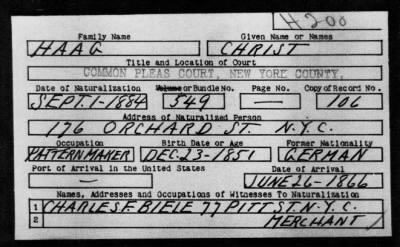 H 200
Family Name Given Name or Names
HAAG CHRIST
Title and Location of Court
COMMON PLEAS COURT, NEW YORK COUNTY.
Date of Naturalization Volume or Bundle No. Page No. Copy of Record No.
SEPT. 1-1884 549 — 106
Address of Naturalized Person
176 ORCHARD ST. N.Y.C.
Occupation Birth Date or Age Former Nationality
PATTERNMAKER DEC-23-1851 GERMAN
Port of Arrival in the United States Date of Arrival
— JUNE 26-1866
Names, Addresses and Occupations of Witnesses To Naturalization
1 CHARLES F. BIELE 77 PITT ST. N.Y.C.
2 MERCHANT